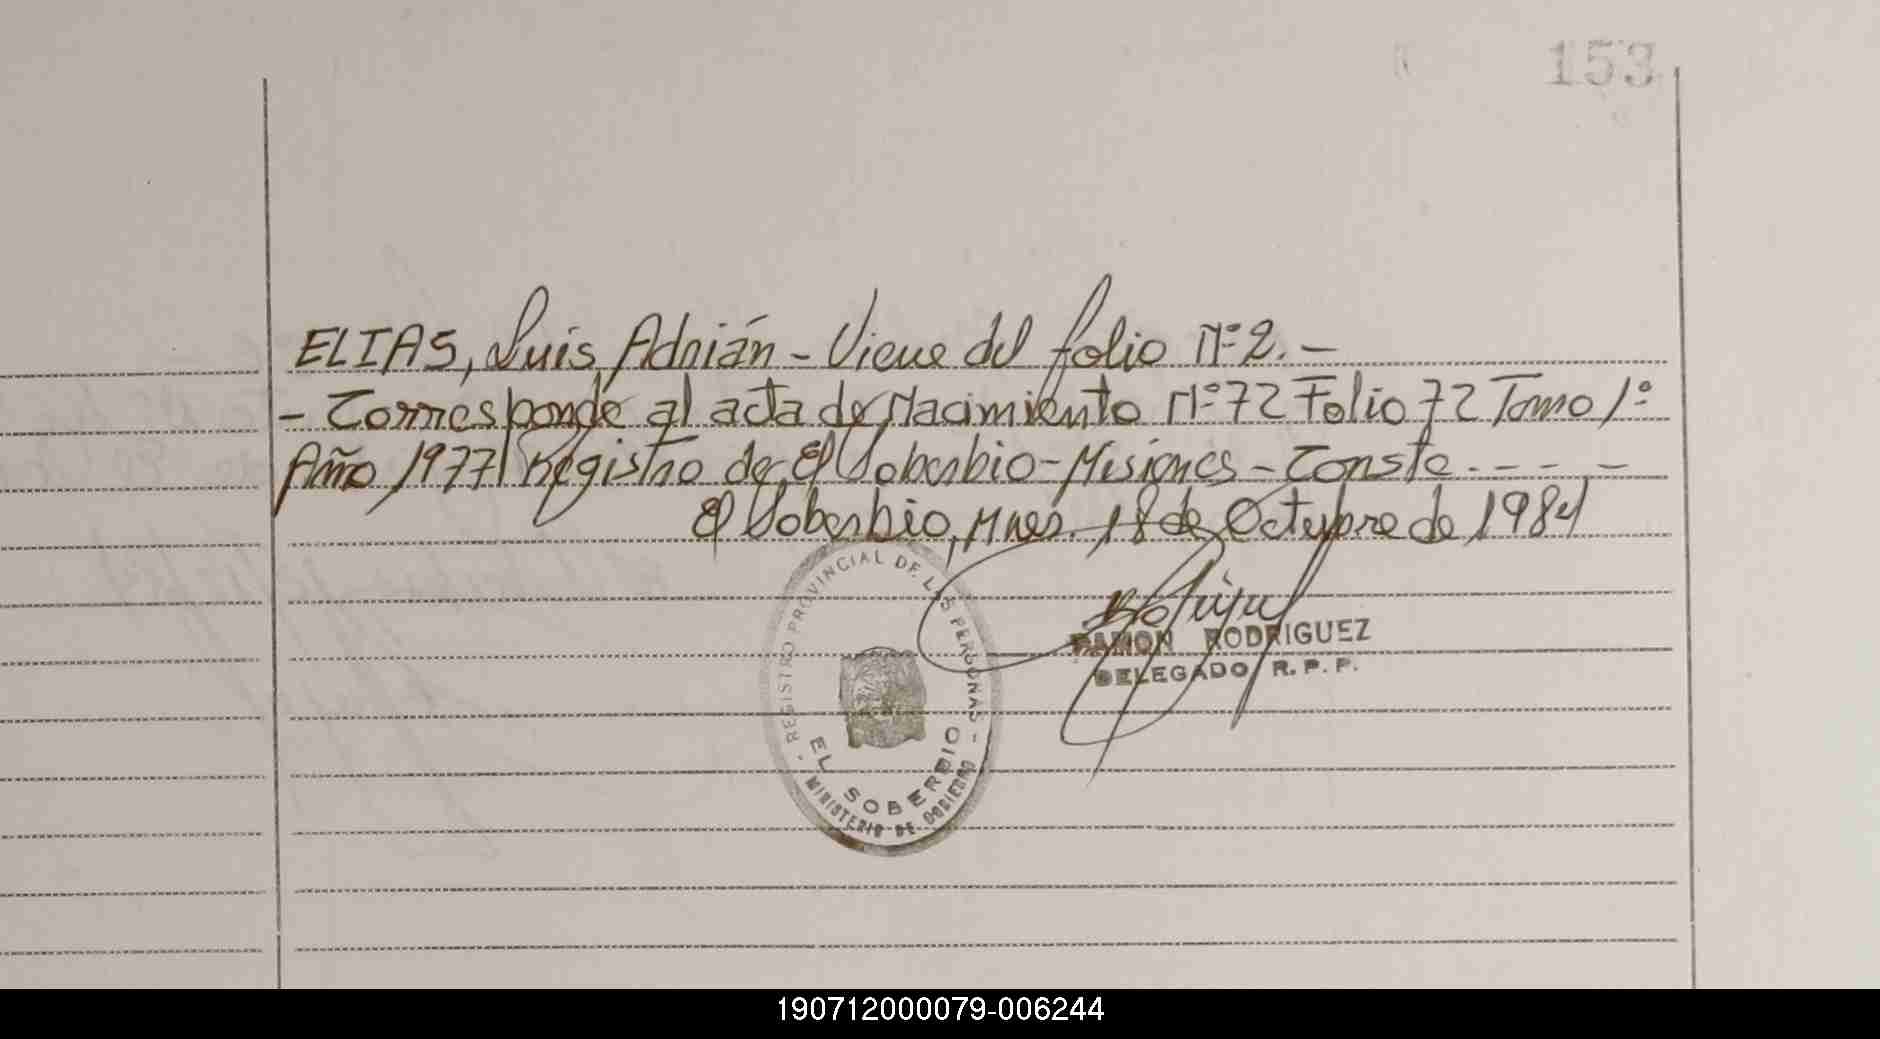 153
ELIAS, Luis Adrián - Viene del folio Nº 2. -
- Corresponde al acta de Nacimiento Nº 72 Folio 72 Tomo 1º
Año 1977 Registro de El Soberbio - Misiones - Conste. - - - -
El Soberbio, Mnes. 18 de Octubre de 1984
- REGISTRO PROVINCIAL DE LAS PERSONAS -
EL SOBERBIO
MINISTERIO DE GOBIERNO
RAMON RODRIGUEZ
DELEGADO R. P. P.
190712000079-006244